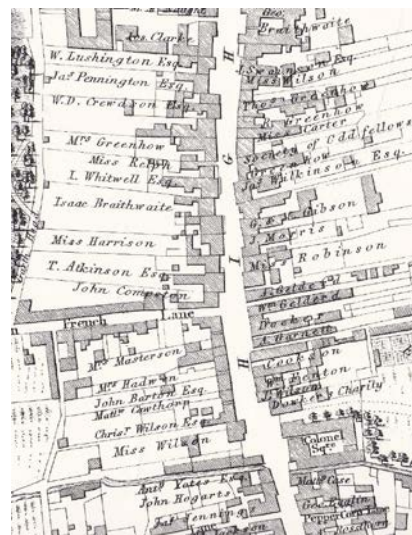 Jos. Clarke
W. Lushington Esq.
Jas. Pennington Esq.
W.D. Crewdson Esq.
Mrs Greenhow
Miss Relph
I. Whitwell Esq.
Isaac Braithwaite
Miss Harrison
T. Atkinson Esq.
John Compston
French Lane
Mrs Masterson
Mrs Hadwen
John Barton Esq.
Mattw Cawthorn
Chrisr Wilson Esq.
Miss Wilson
Anty Yates Esq.
John Hogarts
Jas Jennings
Lane
HIGH
Geo. Braithwaite
Miss Wilson
Thos Gredenhow
R. Greenhow
Miss Carter
Society of Odd fellows
Jos Wilkinson Esq.
Gibson
J Morris
Robinson
Wm Geldard
Docker
A. Garnett
Cookson
Wm Fenton
J. Wilson
Dowker's Charity
Colonel Sqre.
Mattw Case
Pepper Corn Lane